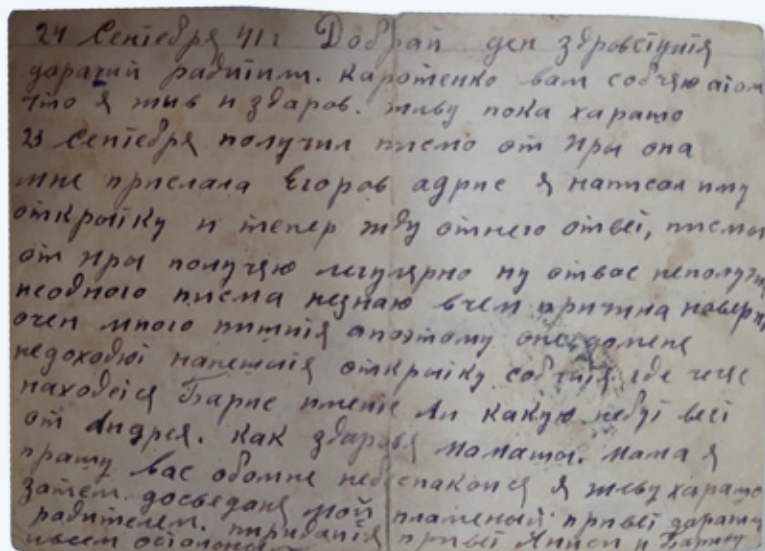 24 Сентебря 41 г Добрай ден здравствуйтя
дорагий радители. Каротенко вам собчяю атом
что я жыв и здаров. жыву пока харашо
23 Сентебря получил писмо от Иры она
мне прислала Егоров адрис я написал иму
открытку и тепер жду отнего ответ, писмы
от Иры получяю легулярно ну отвас неполучил
неодного писма незнаю вчем причина наверн
очен много пишитя апоэтому они доменя
недоходют напешыття открытку собчитя где
находеця Барис имеите ли какую нибуть вест
от Андрея. Как здаровья мамашы. мама я
прашу вас обомне небеспакойся я жыву харашо
затем досведаня мой пламеный привет дарагим
радителем. пиридайтя привет Аниси и Барису
ивсем остальным